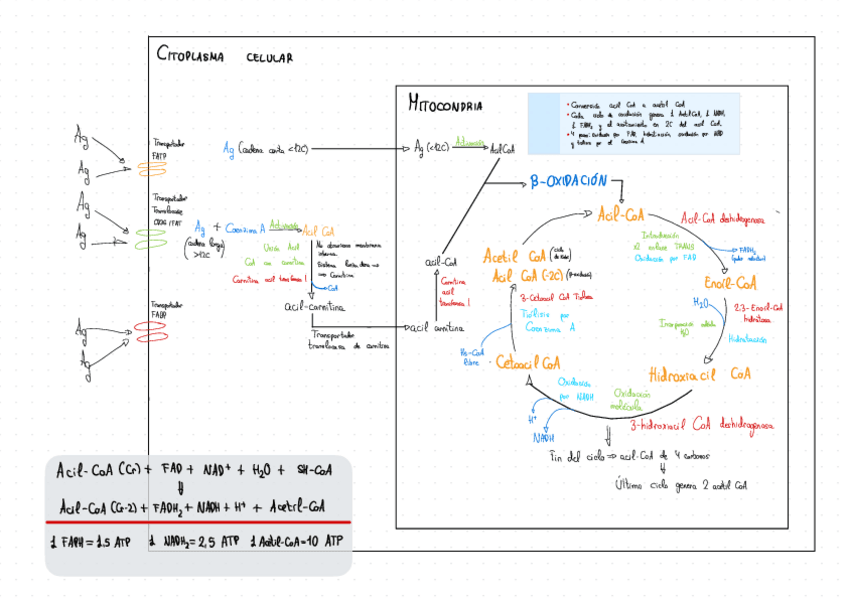 CITOPLASMA CELULAR
MITOCONDRIA
• Conversión acil CoA a acetil CoA
• Cada ciclo de oxidación genera 1 Acetil CoA, 1 NADH,
1 FADH₂ y el acortamiento en 2C del acil CoA
Ag
Ag
Transportador
FATP
Ag
Ag
Transportador
Translocasa
Ag
Ag
Transportador
FABP
Ag (cadena corta <12C)
Ag (<12C)
Activación
Acil CoA
Ag + Coenzima A
Activación
Acil CoA
(cadena larga)
>12C
Unión Acil
CoA con carnitina
Carnitina acil transferasa I
No atraviesa membrana
interna
CoA
acil-carnitina
Transportador
translocasa de carnitina
acil carnitina
Carnitina
acil
transferasa I
acil-CoA
B-OXIDACIÓN
Acil-CoA
Acil-CoA deshidrogenasa
Introducción
enlace TRANS
Oxidación por FAD
FADH₂
Enoil-CoA
H₂O
2,3-Enoil-CoA
hidratasa
H₂O
Hidratación
Hidroxiacil CoA
3-hidroxiacil CoA deshidrogenasa
Oxidación
molécula
Oxidación
por NADH
H⁺
NADH
Cetoacil CoA
Hs-CoA
libre
Tiólisis por
Coenzima A
3-Cetoacil CoA Tiolasa
Acetil CoA (ciclo
de Krebs)
Acil CoA (-2C)
Fin del ciclo ⇒ acil-CoA de 4 carbonos
Último ciclo genera 2 acetil CoA
Acil-CoA (Cr) + FAD + NAD⁺ + H₂O + SH-CoA
Acil-CoA (Cr-2) + FADH₂ + NADH + H⁺ + Acetil-CoA
1 FADH = 1.5 ATP 1 NADH₂ = 2,5 ATP 1 Acetil-CoA = 10 ATP